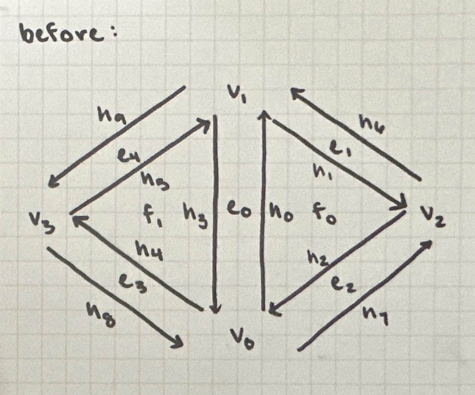 before:
v₁
h₉
h₆
e₄
e₁
h₅
h₁
v₃
f₁
h₃
e₀
h₀
f₀
v₂
h₄
h₂
e₃
e₂
h₈
h₇
v₀